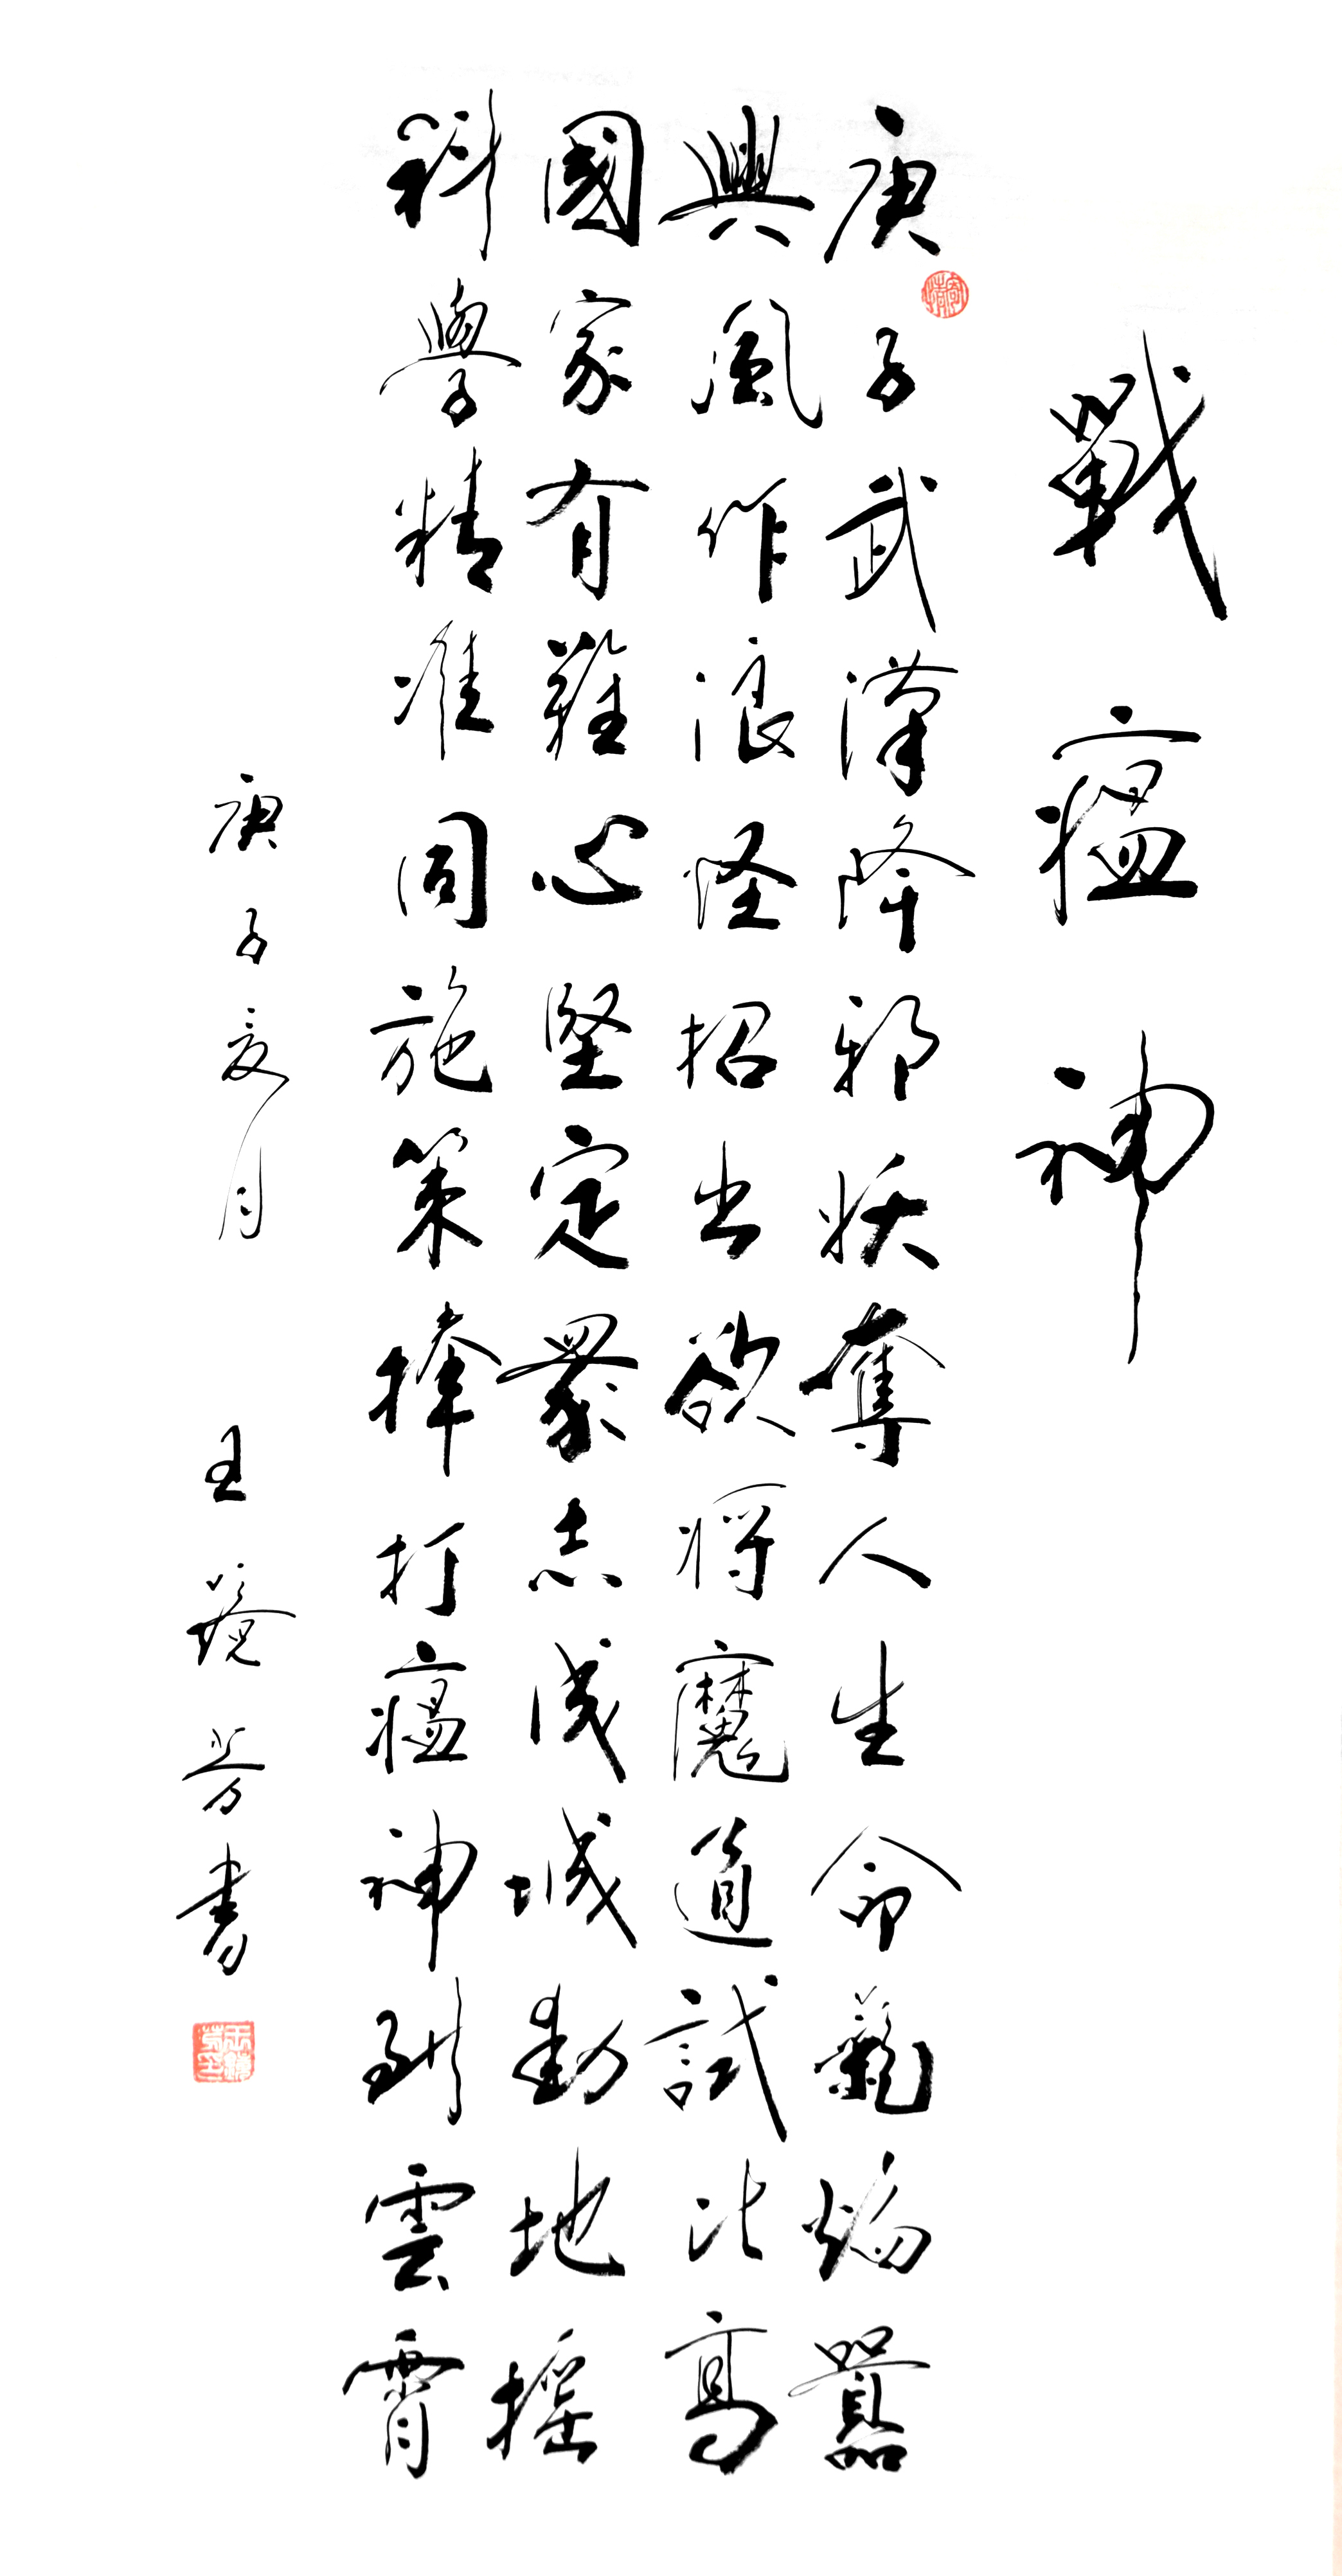 戰瘟神
庚子武漢降邪妖奪人生命氣焰囂
興風作浪怪招出欲將魔道試比高
國家有難心堅定眾志成城動地搖
科學精准同施策棒打瘟神到雲霄
庚子夏月 王芳書
寄情